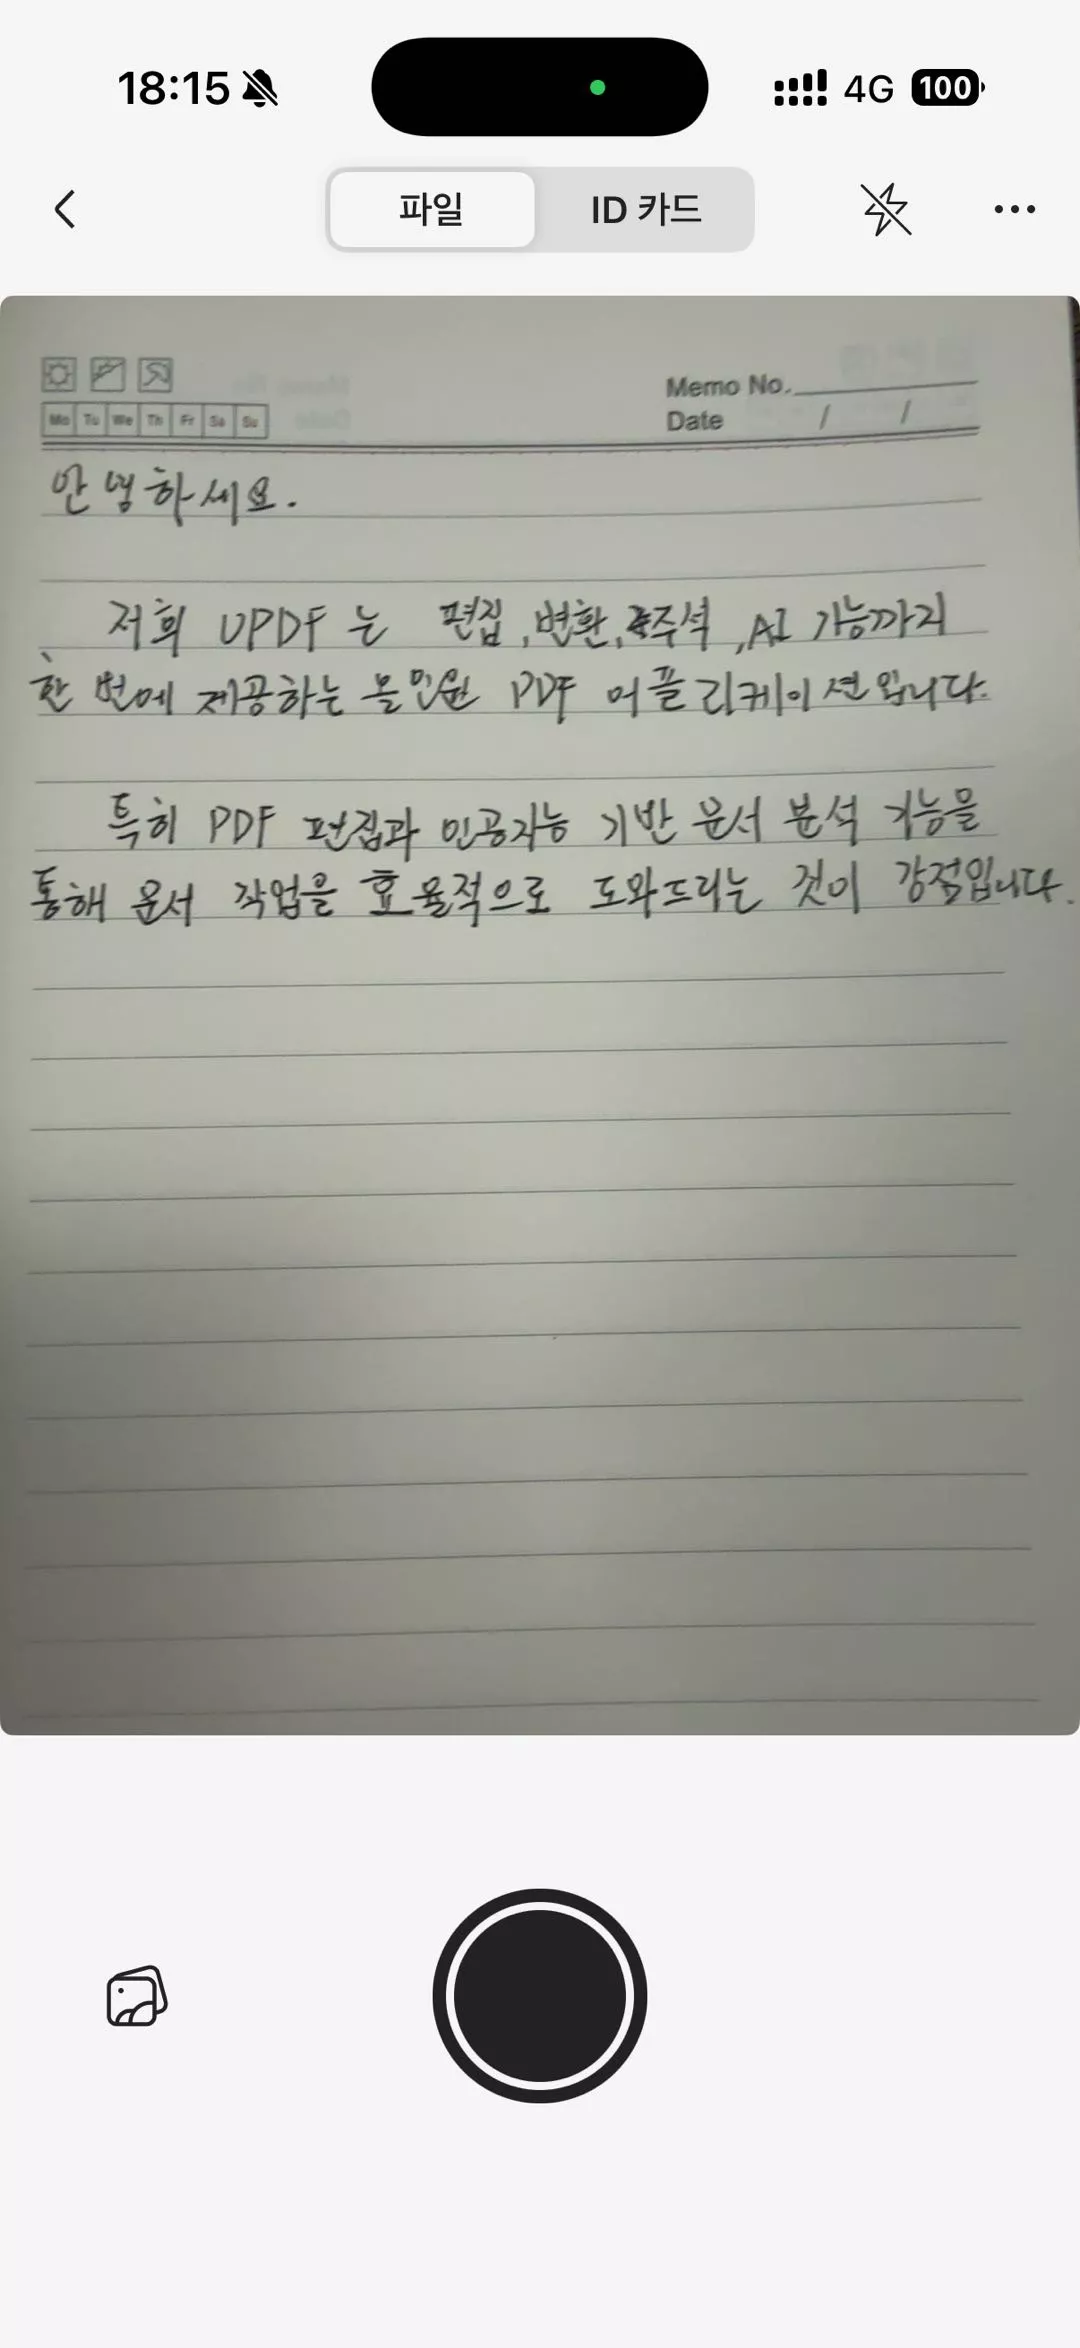 18:15 4G 100
파일 ID 카드
Memo No.
Mo Tu We Th Fr Sa Su Date / /
안녕하세요.
저희 UPDF 는 편집, 변환, 주석, AI 기능까지
한 번에 제공하는 올인원 PDF 어플리케이션입니다.
특히 PDF 편집과 인공지능 기반 문서 분석 기능을
통해 문서 작업을 효율적으로 도와드리는 것이 강점입니다.